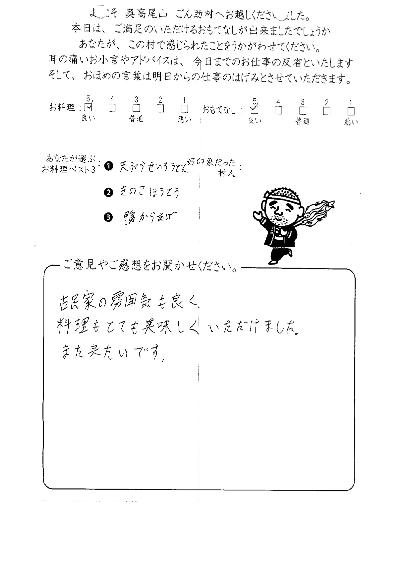 よ こそ 奥高尾山 ごん助村へお越しください した。
本日は、ご満足のいただけるおもてなしが出来ましたでしょうか
あなたが、この村で感じられたことをうかがわせてください。
耳の痛いお小言やアドバイスは、今日までのお仕事の反省といたします
そして、おほめの言葉は明日からの仕事のはげみとさせていただきます。
お料理: 5 4 3 2 1 おもてなし: 5 4 3 2 1
良い 普通 悪い 良い 普通 悪い
あなたが選ぶ
お料理ベスト3:
❶
村人:
❷ きのこほうとう
❸
ご意見やご感想をお聞かせください。
古民家の雰囲気も良く
料理もとても美味しくいただけました。
また来たいです。